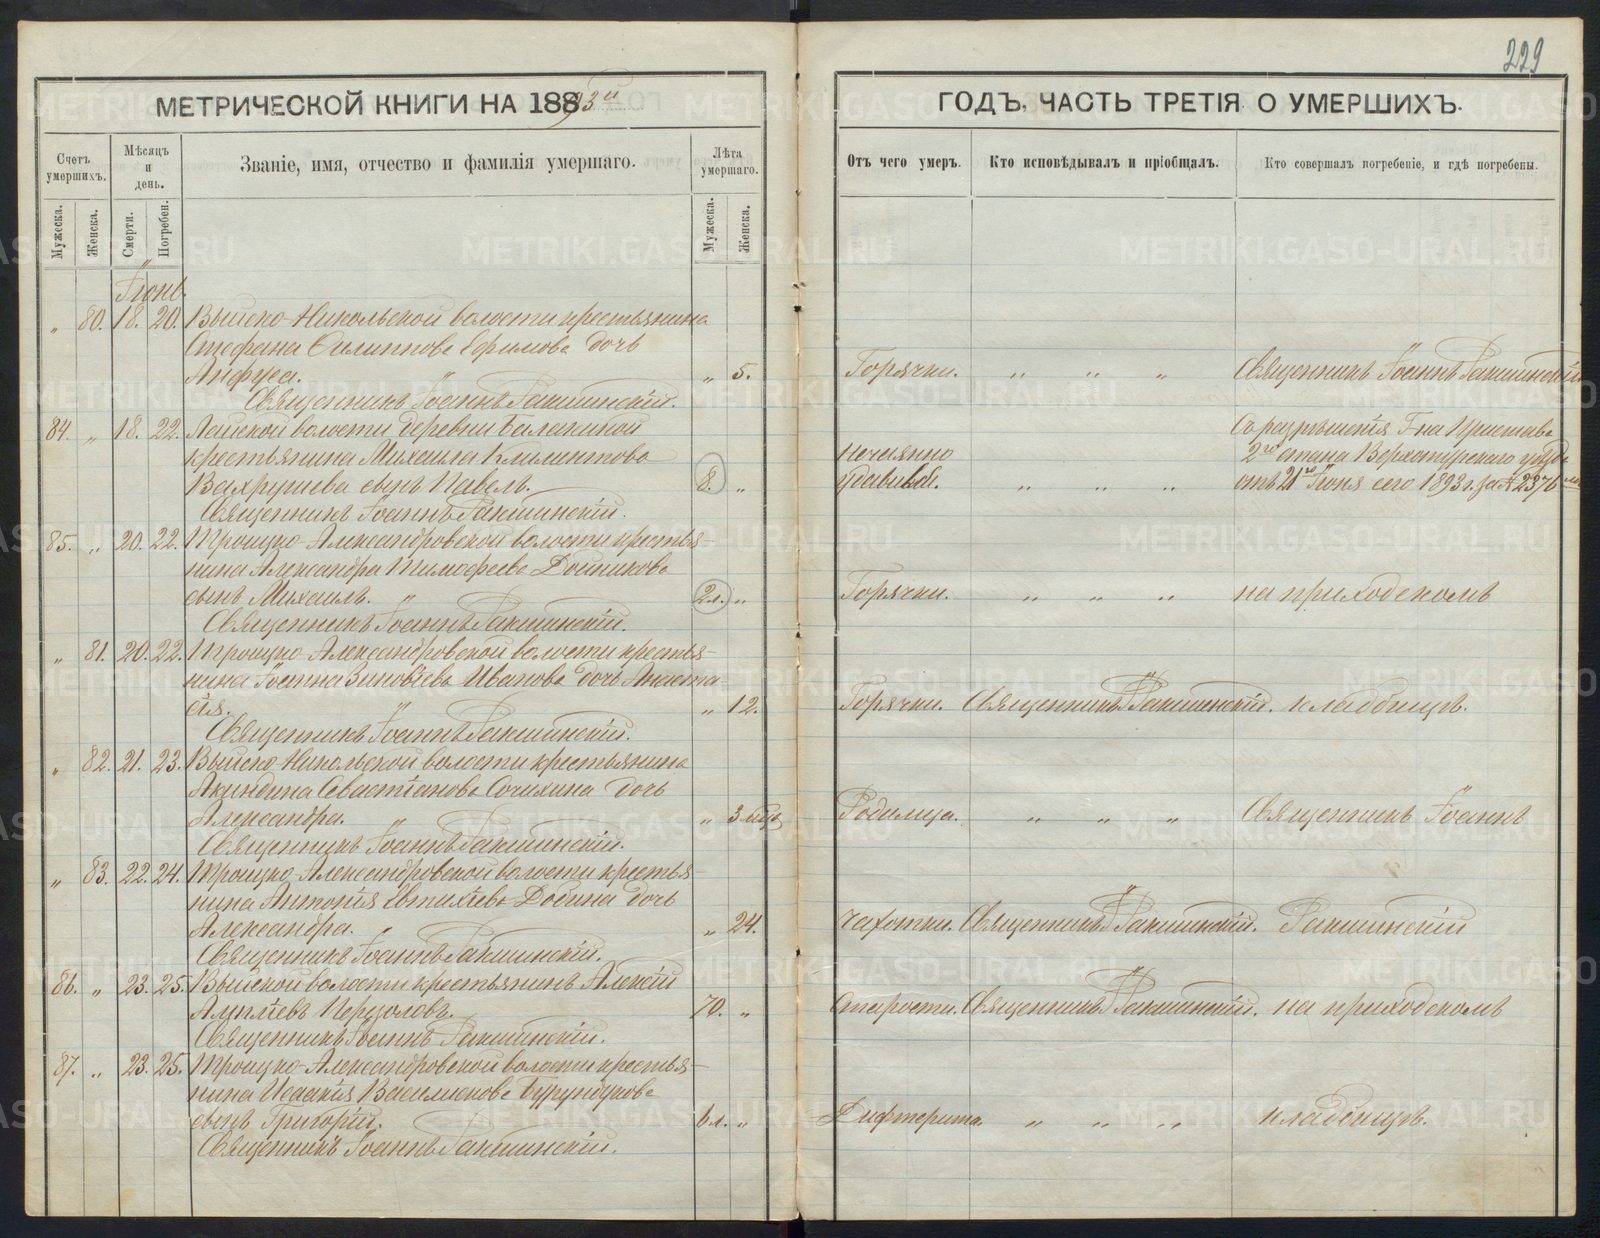 229
МЕТРИЧЕСКОЙ КНИГИ НА 1893й
ГОДЪ, ЧАСТЬ ТРЕТІЯ О УМЕРШИХЪ.
Счетъ умершихъ.
Мѣсяцъ и день.
Званіе, имя, отчество и фамилія умершаго.
Лѣта умершаго.
Отъ чего умеръ.
Кто исповѣдывалъ и пріобщалъ.
Кто совершалъ погребеніе, и гдѣ погребены.
Мужеска.
Женска.
Смерти.
Погребен.
Мужеска.
Женска.
Іюнь.
„ 80. 18. 20. Выйско-Никольской волости крестьянина
Стефана Филиппова Ефимова дочь
Анфуса. „ 5. Горячки. „ „ „ Священникъ Іоаннъ Какшинскій
Священникъ Іоаннъ Какшинскій.
84. „ 18. 22. Лайской волости деревни Балакиной
крестьянина Михаила Климентова
Вахрушева сынъ Павелъ. 8. „
нечаянно
удавился. „ „ „
Съ разрѣшенія Г-на Пристава
2го стана Верхотурскаго уѣзда
отъ 21го Іюня сего 1893 г. за № 2376
Священникъ Іоаннъ Какшинскій.
85. „ 20. 22. Троицко-Александровской волости крестья-
нина Александра Тимофеева Дойникова
сынъ Михаилъ. 2 л. „ Горячки. „ „ „ на приходскомъ
Священникъ Іоаннъ Какшинскій.
„ 81. 20. 22. Троицко-Александровской волости крестья-
нина Іоанна Зиновіева Иванова дочь Анаста
сія. „ 12. Горячки. Священникъ І Какшинскій. кладбищѣ.
Священникъ Іоаннъ Какшинскій.
„ 82. 21. 23. Выйско-Никольской волости крестьянина
Акиндина Севастіанова Сочихина дочь
Александра. „ 3 мѣс. Родимца. „ „ „ Священникъ Іоаннъ
Священникъ Іоаннъ Какшинскій.
„ 83. 22. 24. Троицко-Александровской волости крестья-
нина Антонія Евтихіева дочь
Александра. „ 24. Чахотки. Священникъ І Какшинскій. Какшинскій
Священникъ Іоаннъ Какшинскій.
86. „ 23. 25. Выйской волости крестьянинъ Алексій
70. „ Старости. Священникъ І Какшинскій. на приходскомъ
Священникъ Іоаннъ Какшинскій.
87. „ 23. 25. Троицко-Александровской волости крестья-
нина Исаакія Василискова Бурундукова
сынъ Григорій. 6 л. „ Дифтерита. „ „ „ кладбищѣ.
Священникъ Іоаннъ Какшинскій.
METRIKI.GASO-URAL.RU